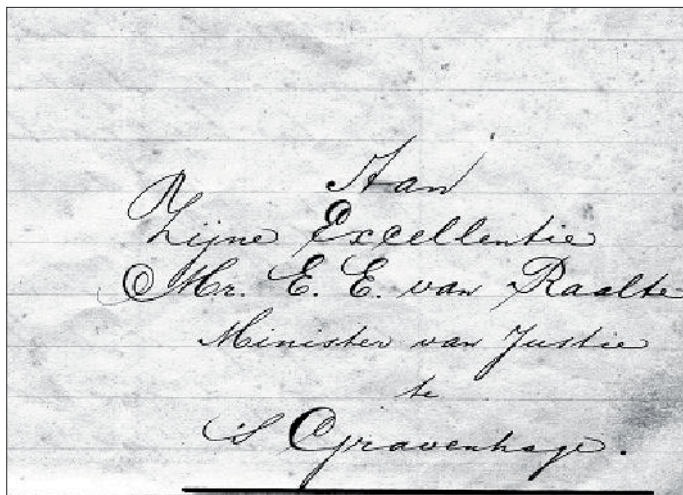 Aan
Zijne Excellentie
Mr. E. E. van Raalte
Minister van Justitie
te
's Gravenhage.